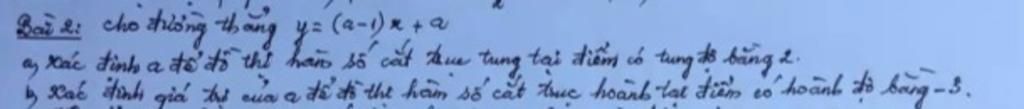 Bài 2: cho đường thẳng y = (a-1)x + a
a, xác định a để đồ thị hàm số cắt trục tung tại điểm có tung độ bằng 2.
b, xác định giá trị của a để đồ thị hàm số cắt trục hoành tại điểm có hoành độ bằng -3.